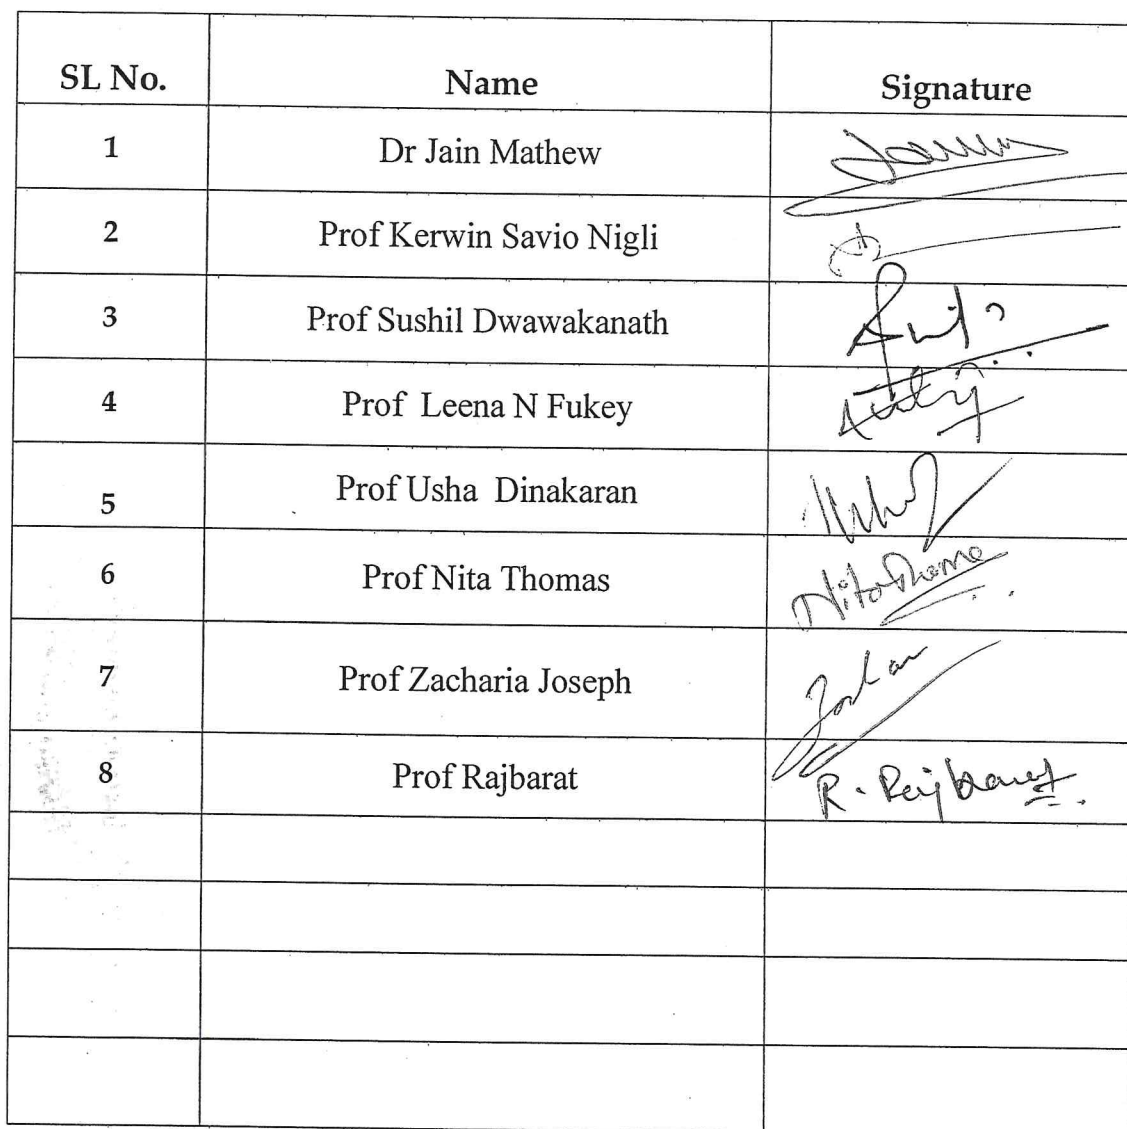 SL No. Name Signature
1 Dr Jain Mathew
2 Prof Kerwin Savio Nigli
3 Prof Sushil Dwawakanath
4 Prof Leena N Fukey
5 Prof Usha Dinakaran
6 Prof Nita Thomas
7 Prof Zacharia Joseph
8 Prof Rajbarat R. Rajbarat